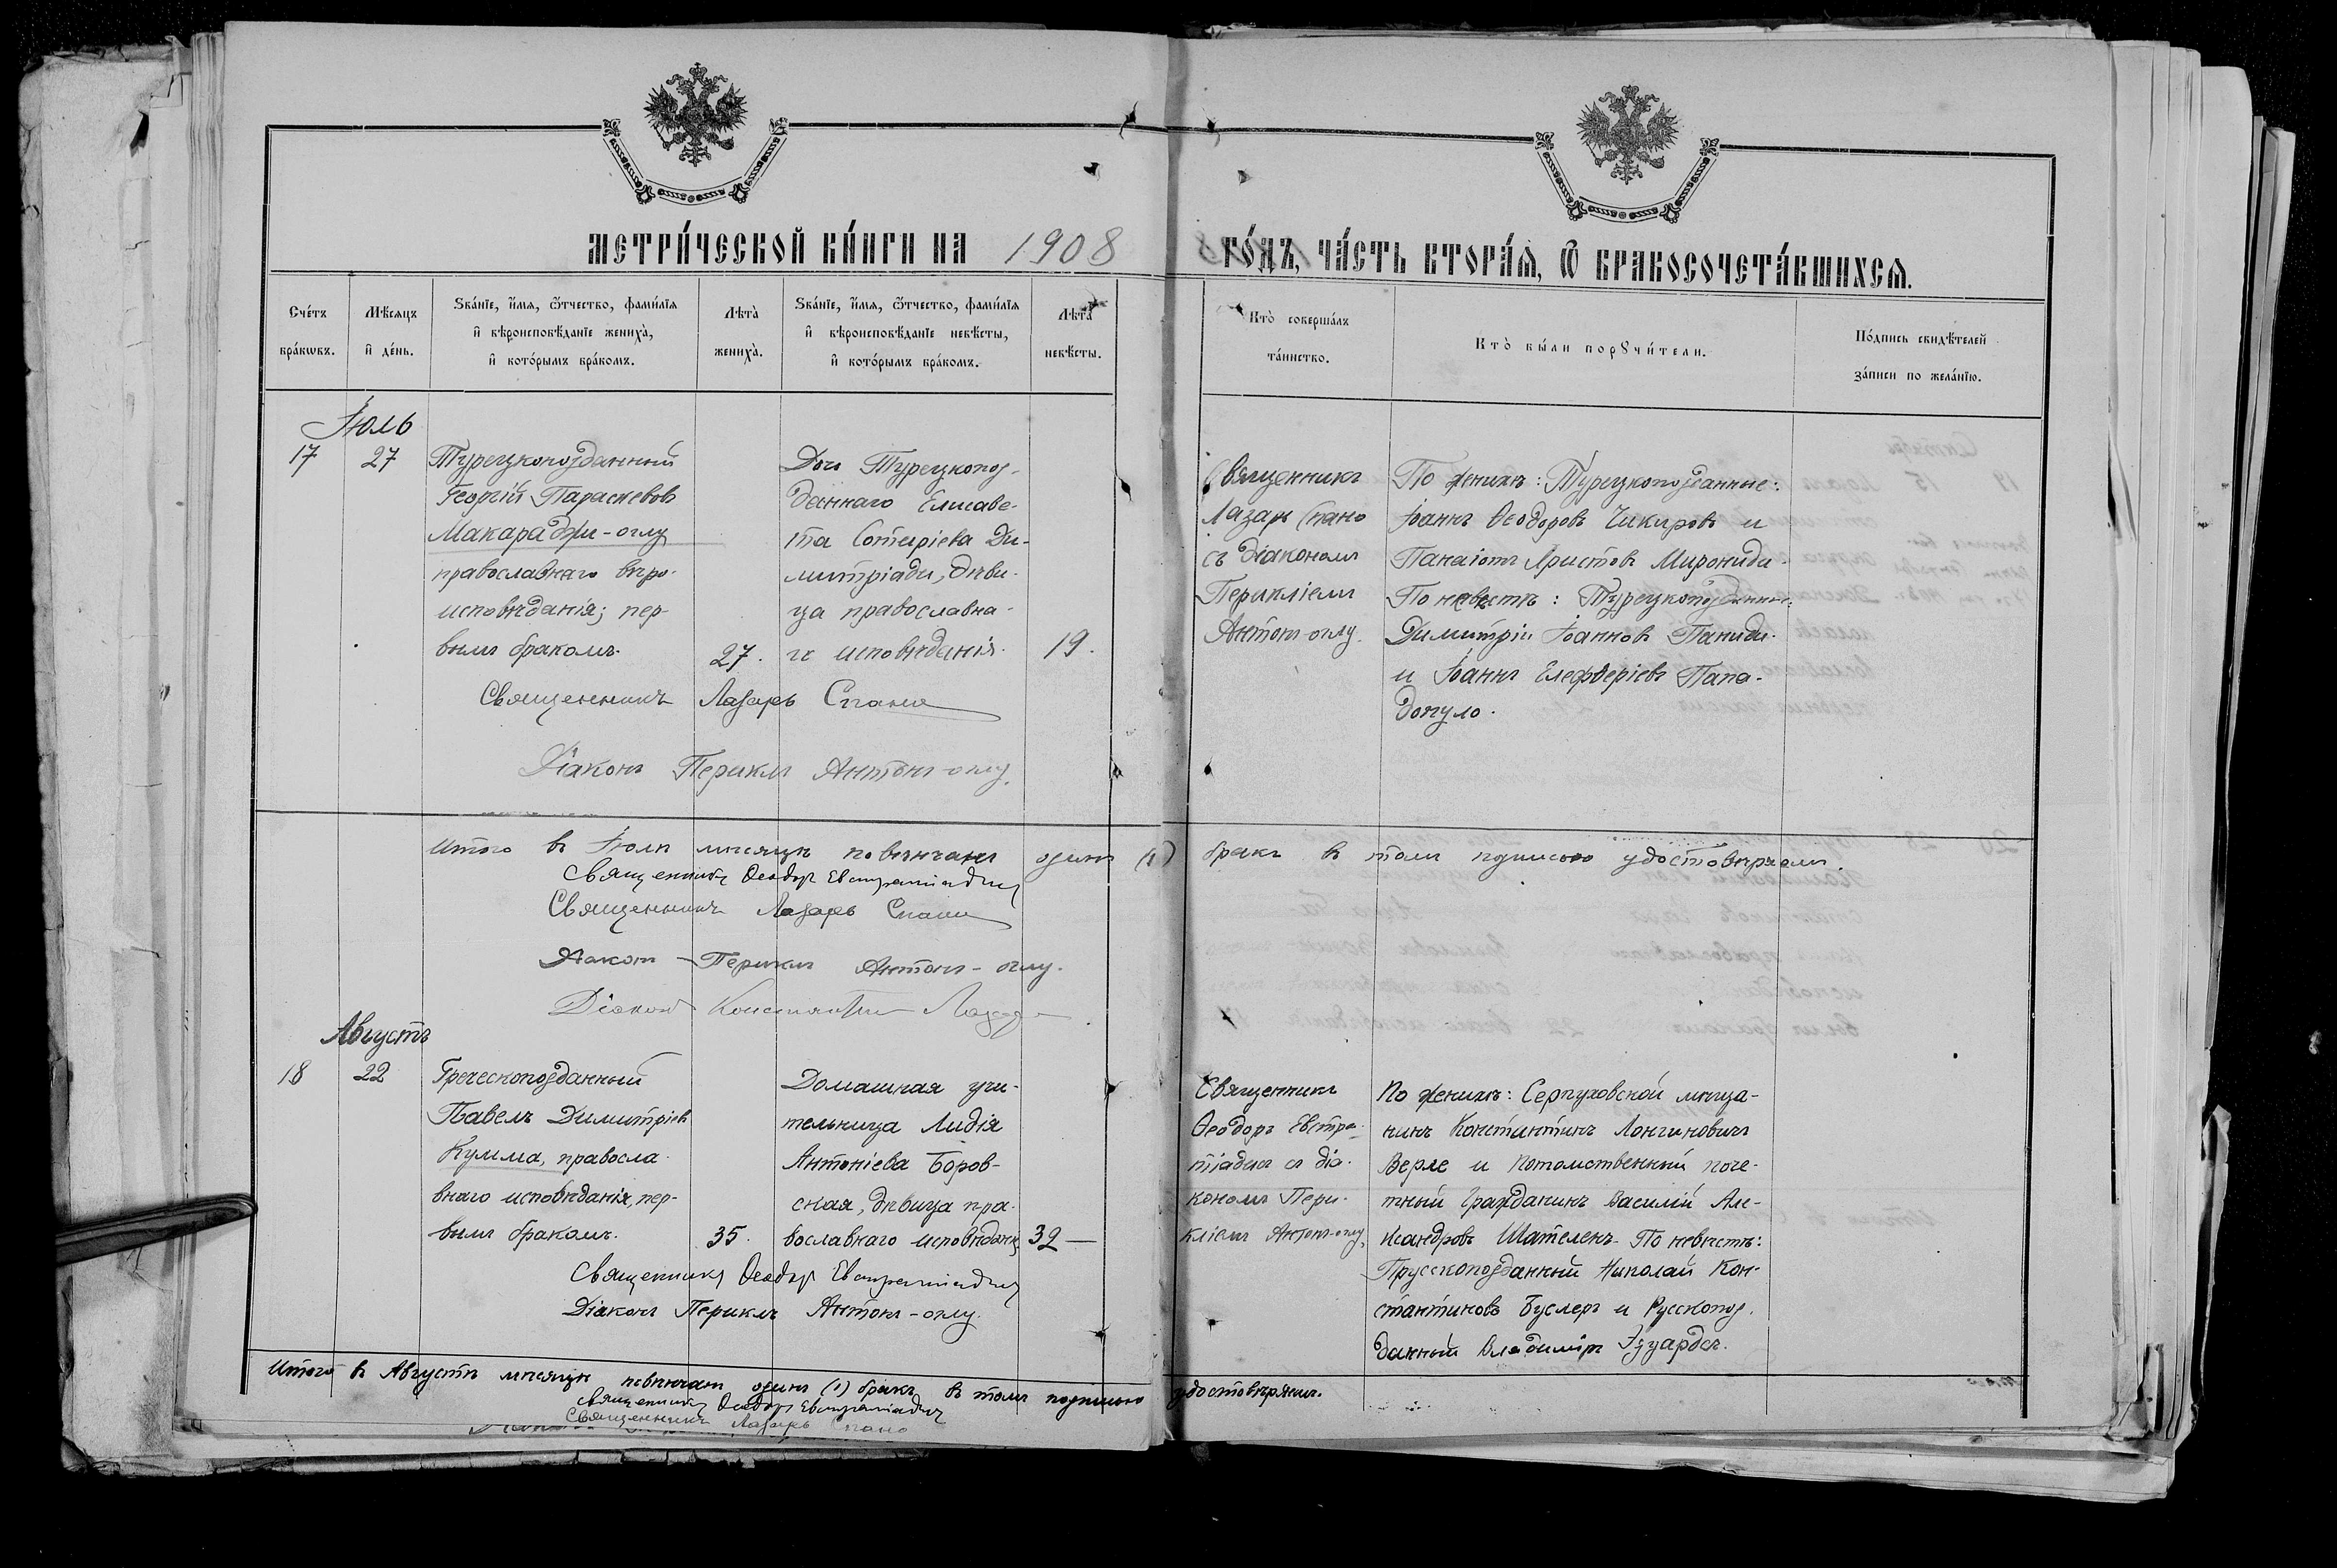 МЕТРИ́ЧЕСКОЙ КНИ́ГИ НА 1908 ГО́ДЪ, ЧА́СТЬ ВТОРА́Я, Ѽ БРАКОСОЧЕТА́ВШИХСЯ.
Сче́тъ бра́кѡвъ.
Мѣ́сяцъ и҆ де́нь.
Ѕва́нїе, и҆́мя, ѻ҆́тчество, фами́лїя и҆ вѣроисповѣ́данїе жениха̀, и҆ кото́рымъ бра́комъ.
Лѣ́та жениха̀.
Ѕва́нїе, и҆́мя, ѻ҆́тчество, фами́лїя и҆ вѣроисповѣ́данїе невѣ́сты, и҆ кото́рымъ бра́комъ.
Лѣ́та невѣ́сты.
Кто̀ соверша́лъ та́инство.
Кто̀ бы́ли порꙋчи́тели.
По́дпись свидѣ́телей за́писи по жела́нїю.
Іюль
17
27
Турецкоподданный
Георгій Параскевовъ
Макараджи-оглу
православнаго вѣро-
исповѣданія; пер-
вымъ бракомъ.
27.
Дочь Турецкопод-
даннаго Елисаве-
та Сотиріева Ди-
митріади, дѣви-
ца православна-
го исповѣданія.
19.
Священникъ
Лазарь Спано
съ діакономъ
Перикліемъ
Антонъ-оглу.
По женихѣ: Турецкоподданные:
Іоаннъ Ѳеодоровъ Чикировъ и
Панаіотъ Аристовъ Мирониди.
По невѣстѣ: Турецкоподданные:
Димитрій Іоанновъ Паниди
и Іоаннъ Елефѳеріевъ Папа-
допуло.
Священникъ Лазарь Спано
Діаконъ Периклъ Антонъ-оглу.
Итого въ Іюлѣ мѣсяцѣ повѣнчанъ одинъ (1) бракъ въ томъ подписью удостовѣряемъ.
Священникъ Ѳеодоръ Евстратіадисъ
Священникъ Лазарь Спано
Діаконъ Периклъ Антонъ-оглу.
Діаконъ Константинъ
Августъ
18
22
Греческоподданный
Павелъ Димитріевъ
Кумма, правосла-
внаго исповѣданія, пер-
вымъ бракомъ.
35.
Домашняя учи-
тельница Лидія
Антоніева Боров-
ская, дѣвица пра-
вославнаго исповѣданія
32
Священникъ
Ѳеодоръ Евстра-
тіадисъ съ діа-
кономъ Пери-
кліемъ Антонъ-оглу.
По женихѣ: Серпуховской мѣща-
нинъ Константинъ Лонгиновичъ
Верле и Потомственный поче-
тный гражданинъ Василій Але-
ксандровъ Шателенъ. По невѣстѣ:
Прусскоподданный Николай Кон-
стантиновъ Буслеръ и Русскопод-
данный Владиміръ Эдуардсъ.
Священникъ Ѳеодоръ Евстратіадисъ
Діаконъ Периклъ Антонъ-оглу.
Итого въ Августѣ мѣсяцѣ повѣнчанъ одинъ (1) бракъ, въ томъ подписью удостовѣряемъ.
Священникъ Ѳеодоръ Евстратіадисъ
Священникъ Лазарь Спано